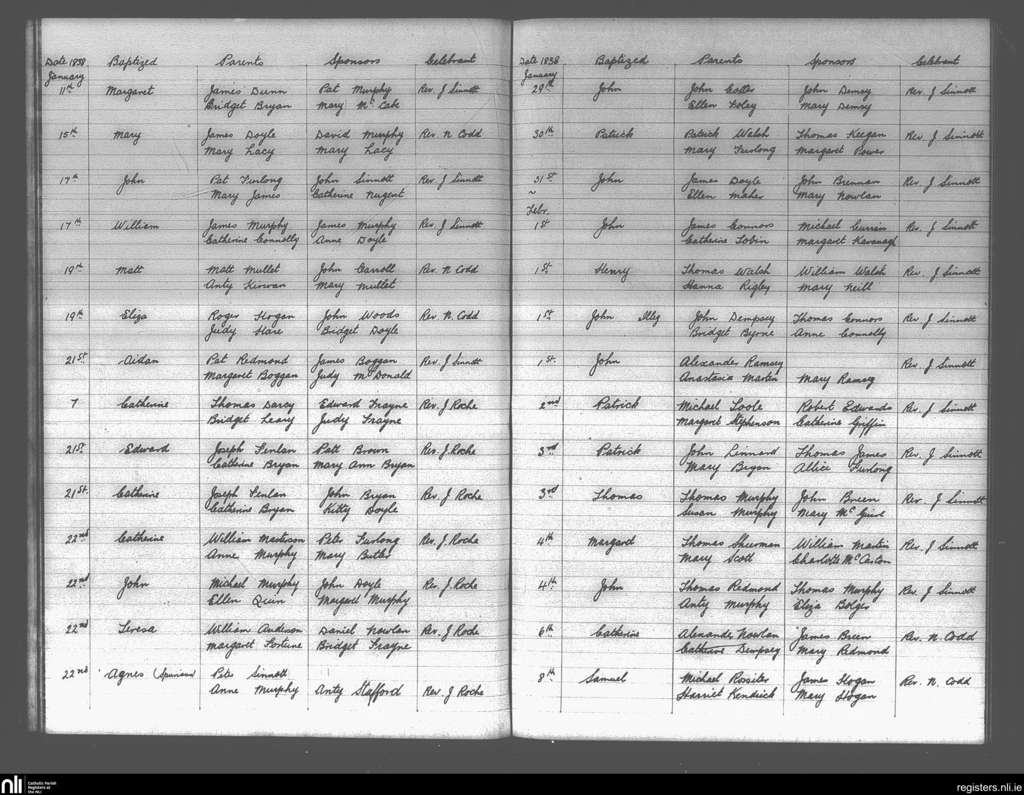 Date 1838 Baptized Parents Sponsors Celebrant
January
11th Margaret James Dunn Pat Murphy Rev. J Sinnott
Bridget Bryan Mary Mc Cabe
15th Mary James Doyle David Murphy Rev N Codd
Mary Lacy Mary Lacy
17th John Pat Furlong John Sinnott Rev. J Sinnott
Mary James Catherine Nugent
17th William James Murphy James Murphy Rev. J Sinnott
Catherine Connolly Anne Doyle
19th Matt Matt Mullet John Carroll Rev. N Codd
Anty Kirwan Mary Mullet
19th Eliza Roger Hogan John Woods Rev N. Codd
Judy Hare Bridget Doyle
21st Aidan Pat Redmond James Boggan Rev. J Sinnott
Margaret Boggan Judy McDonald
Catherine Thomas Darcy Edward Frayne Rev. J Roche
Bridget Leary Judy Frayne
21st Edward Joseph Fenlan Patt Brown Rev. J Roche
Catherine Bryan Mary Ann Bryan
21st. Catherine Joseph Fenlan John Bryan Rev. J Roche
Catherine Bryan Kitty Doyle
22nd Catherine William Masterson Peter Furlong Rev. J Roche
Anne Murphy Mary Butler
22nd John Michael Murphy John Doyle Rev. J Roche
Ellen Quin Margaret Murphy
22nd Teresa William Anderson Daniel Nowlan Rev. J Roche
Margaret Fortune Bridget Frayne
22nd Agnes Peter Sinnott
Anne Murphy Anty Stafford Rev. J Roche
Date 1838 Baptized Parents Sponsors Celebrant
January
29th John John Cotter John Demsy Rev. J Sinnott
Ellen Foley Mary Demsy
30th Patrick Patrick Walsh Thomas Keegan Rev. J Sinnott
Mary Furlong Margaret Power
31st John James Doyle John Brennan Rev. J Sinnott
~ Ellen Maher Mary Nowlan
Febr.
1st John James Connors Michael Currin Rev. J Sinnott
Catherine Tobin Margaret Kavanagh
1st. Henry Thomas Walsh William Walsh Rev. J Sinnott
Hanna Rigley Mary Neill
1st John Illeg John Dempsey Thomas Connors Rev J Sinnott
Bridget Byrne Anne Connolly
1st. John Alexander Ramsey Rev. J Sinnott
Anastasia Martin Mary Ramsey
2nd Patrick Michael Toole Robert Edwards Rev. J Sinnott
Margaret Stephenson Catherine Griffin
3rd Patrick John Linnard Thomas James Rev. J Sinnott
Mary Bryan Allice Furlong
3rd Thomas Thomas Murphy John Breen Rev. J Sinnott
Susan Murphy Mary McGuire
4th Margaret Thomas Sherman William Martin Rev. J Sinnott
Mary Scott Charlotte
4th John Thomas Redmond Thomas Murphy Rev J Sinnott
Anty Murphy Eliza Bolger
6th Catherine Alexander Nowlan James Breen Rev. N. Codd
Catherine Dempsey Mary Redmond
8th Samuel Michael Rossiter James Hogan Rev. N. Codd
Harriet Kendrick Mary Hogan
nli Catholic Parish
Registers at
the NLI
registers.nli.ie